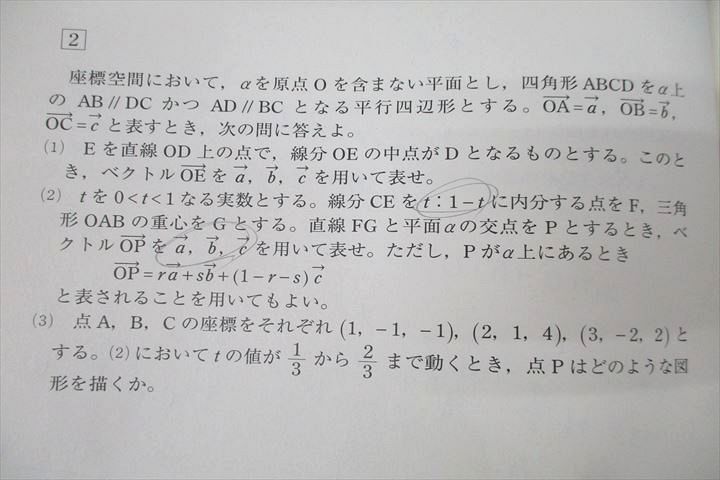 2
座標空間において，αを原点Oを含まない平面とし，四角形ABCDをα上
の AB∥DC かつ AD∥BC となる平行四辺形とする。\overrightarrow{OA}=\vec{a}，\overrightarrow{OB}=\vec{b}，
\overrightarrow{OC}=\vec{c} と表すとき，次の問に答えよ。
(1) Eを直線OD上の点で，線分OEの中点がDとなるものとする。このと
き，ベクトル\overrightarrow{OE}を\vec{a}，\vec{b}，\vec{c}を用いて表せ。
(2) tを0<t<1なる実数とする。線分CEをt：1−tに内分する点をF，三角
形OABの重心をGとする。直線FGと平面αの交点をPとするとき，ベ
クトル\overrightarrow{OP}を\vec{a}，\vec{b}，\vec{c}を用いて表せ。ただし，Pがα上にあるとき
\overrightarrow{OP}=r\vec{a}+s\vec{b}+(1−r−s)\vec{c}
と表されることを用いてもよい。
(3) 点A，B，Cの座標をそれぞれ (1, −1, −1)，(2, 1, 4)，(3, −2, 2)と
する。(2)においてtの値が 1/3 から 2/3 まで動くとき，点Pはどのような図
形を描くか。